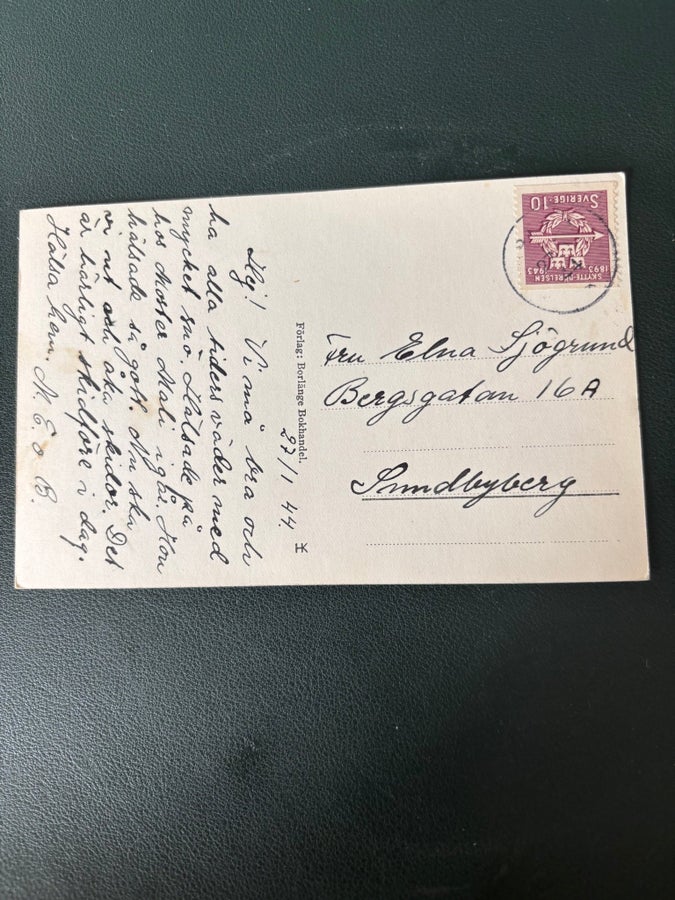 27/1 44.
Hej! Vi må bra och
ha alla tiders väder med
mycket snö. Hälsade på
hos Moster Mali igår. Hon
hälsade så gott. Nu ska
vi ut och åka skidor. Det
är härligt skidföre i dag.
Hälsa hem. M. E o B.
Förlag: Borlänge Bokhandel.
SVERIGE·10
SKYTTERÖRELSEN
1893 1943
Fru Elna Sjögrund
Bergsgatan 16A
Sundbyberg